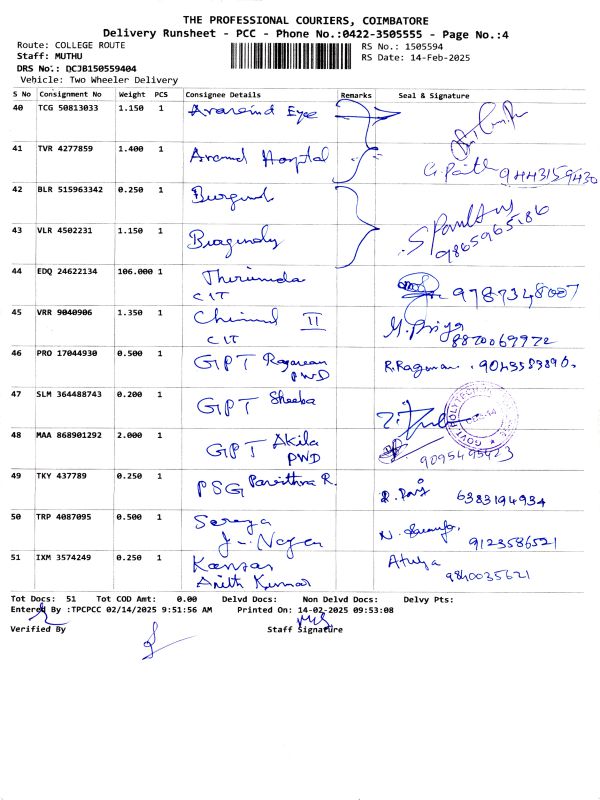 THE PROFESSIONAL COURIERS, COIMBATORE
Delivery Runsheet - PCC - Phone No.:0422-3505555 - Page No.:4
Route: COLLEGE ROUTE
RS No.: 1505594
Staff: MUTHU
RS Date: 14-Feb-2025
DRS No.: DCJB150559404
Vehicle: Two Wheeler Delivery
S No Consignment No Weight PCS Consignee Details Remarks Seal & Signature
40 TCG 50813033 1.150 1 Aravind Eye
41 TVR 4277859 1.400 1 Aravind Hospital 9443159430
42 BLR 515963342 0.250 1 Burgund
43 VLR 4502231 1.150 1 Burgundy 9865965586
44 EDQ 24622134 106.000 1 Thirumda
CIT 9787348007
45 VRR 9040906 1.350 1 II
CIT M. Priya 8870069972
46 PRO 17044930 0.500 1 GPT
PWD R.Ragu 9043583890
47 SLM 364488743 0.200 1 GPT Sheeba
48 MAA 868901292 2.000 1 GPT Akila
PWD 9095495423
49 TKY 437789 0.250 1 PSG Pavithra R. 6383194934
50 TRP 4087095 0.500 1
Nagar N. 9123586521
51 IXM 3574249 0.250 1 Kannan
Ajith Kumar Athya 9840035621
Tot Docs: 51 Tot COD Amt: 0.00 Delvd Docs: Non Delvd Docs: Delvy Pts:
Entered By :TPCPCC 02/14/2025 9:51:56 AM Printed On: 14-02-2025 09:53:08
Verified By Staff Signature